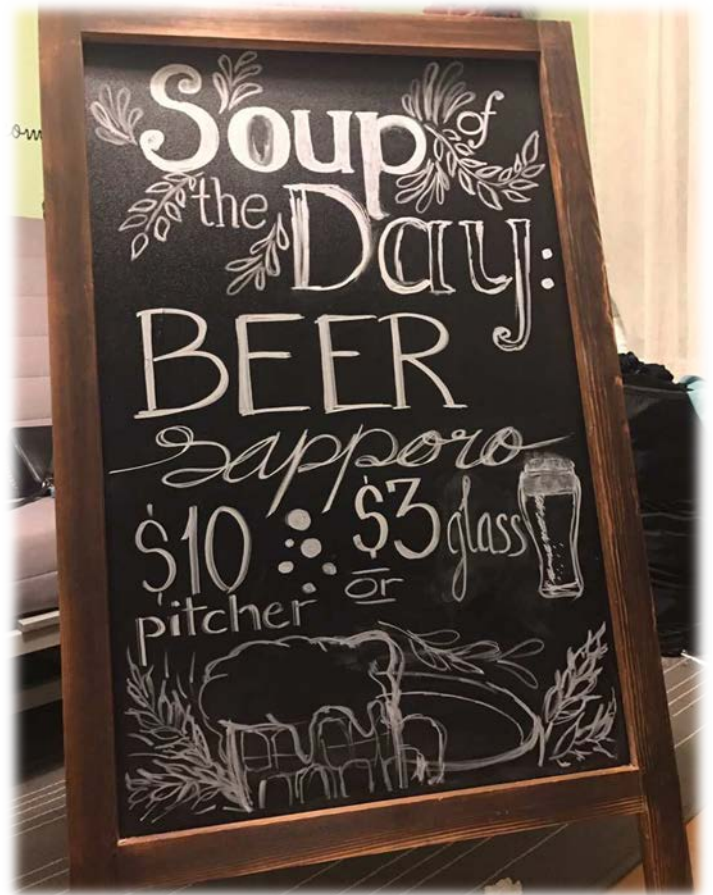 Soup of
the Day:
BEER
Sapporo
$10 pitcher
or
$3 glass